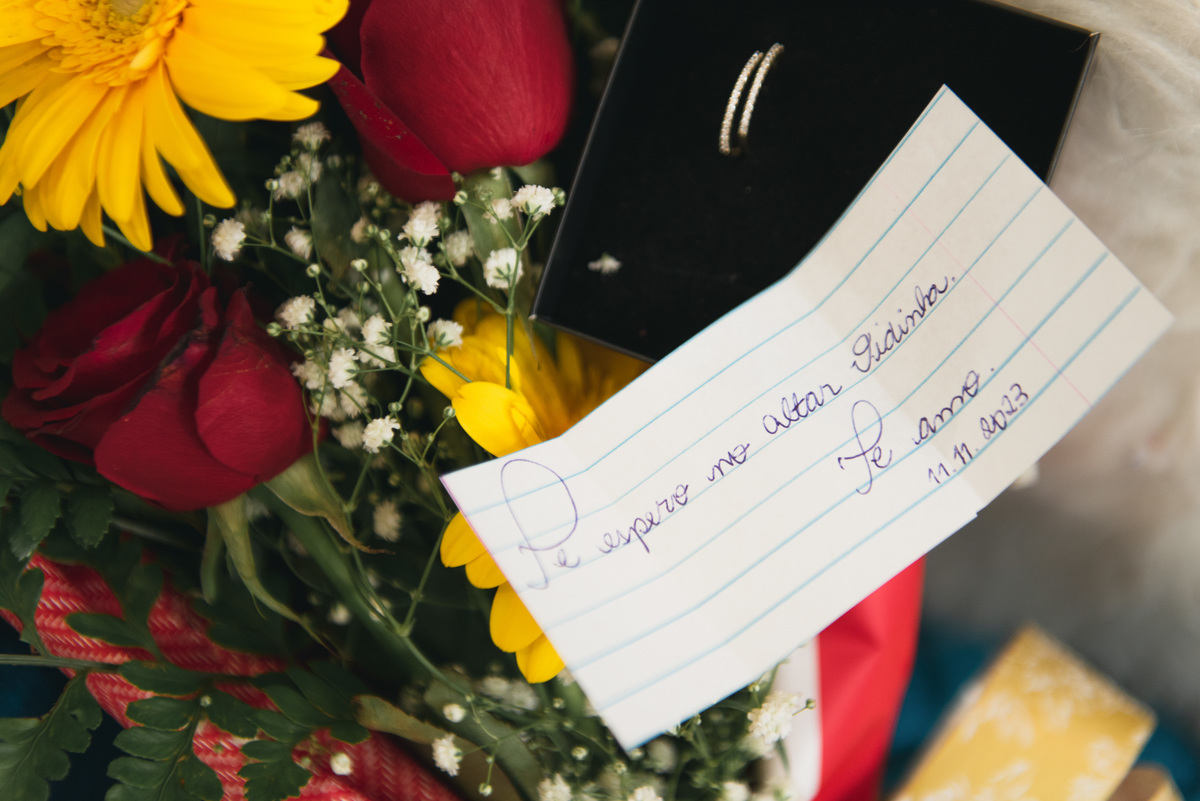 Te espero no altar Didinha.
Te amo.
11.11.2023